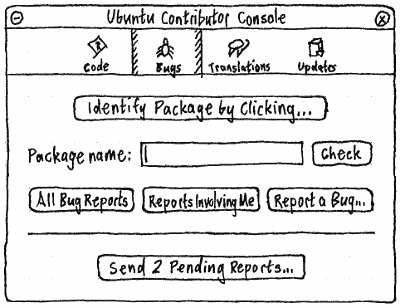 Ubuntu Contributor Console
Code Bugs Translations Updates
Identify Package by Clicking...
Package name: Check
All Bug Reports Reports Involving Me Report a Bug...
Send 2 Pending Reports...